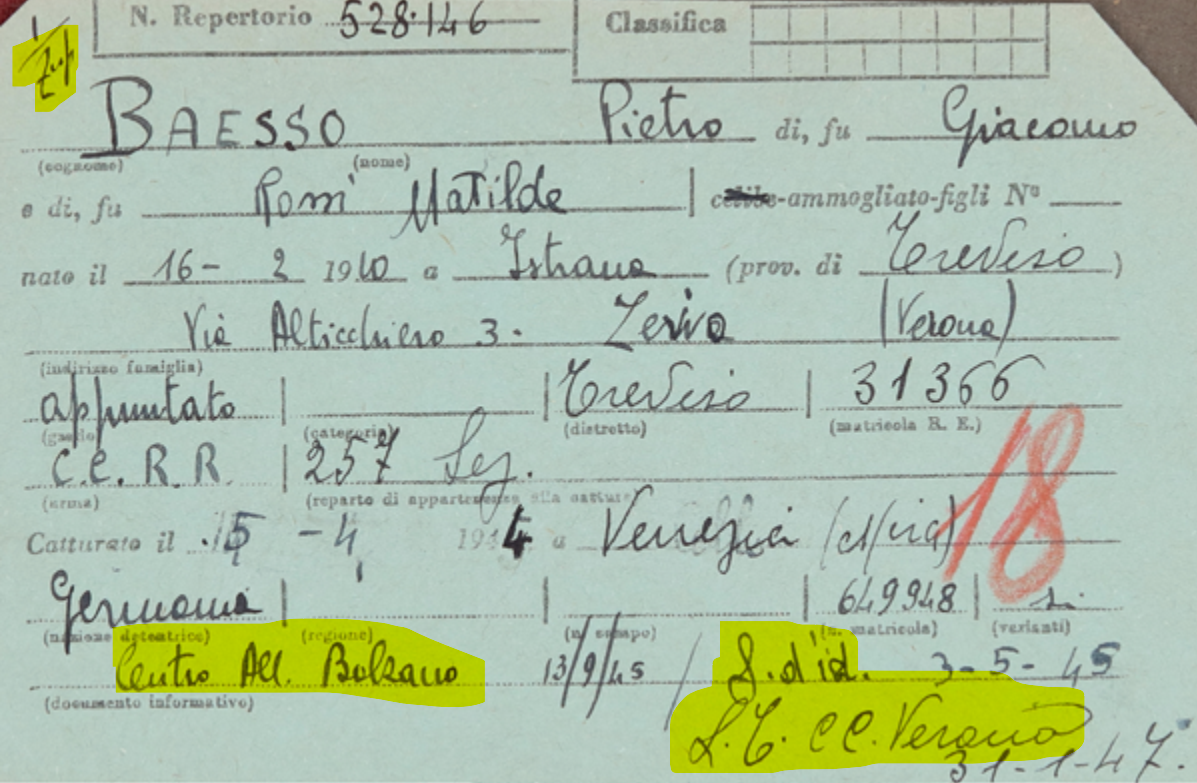 N. Repertorio 528.146 Classifica
BAESSO Pietro di, fu Giacomo
(cognome) (nome)
e di, fu Rossi Matilde celibe-ammogliato-figli N°
nato il 16- 2 1910 a Istrana (prov. di Treviso)
Via Alticchiero 3- Zevio (Verona)
(indirizzo famiglia)
appuntato Treviso 31366
(grado) (categoria) (distretto) (matricola R. E.)
C.C. R.R. 257 Sez.
(arma) (reparto di appartenenza alla cattura)
18
Catturato il 15 -4 1944 a Venezia
Germania 649948 si
(nazione detentrice) (regione) (n. campo) (n. matricola) (varianti)
Centro All. Bolzano 13/9/45 / S. d'id. 3-5-45
(documento informativo)
L.T. CC. Verona
31-1-47.